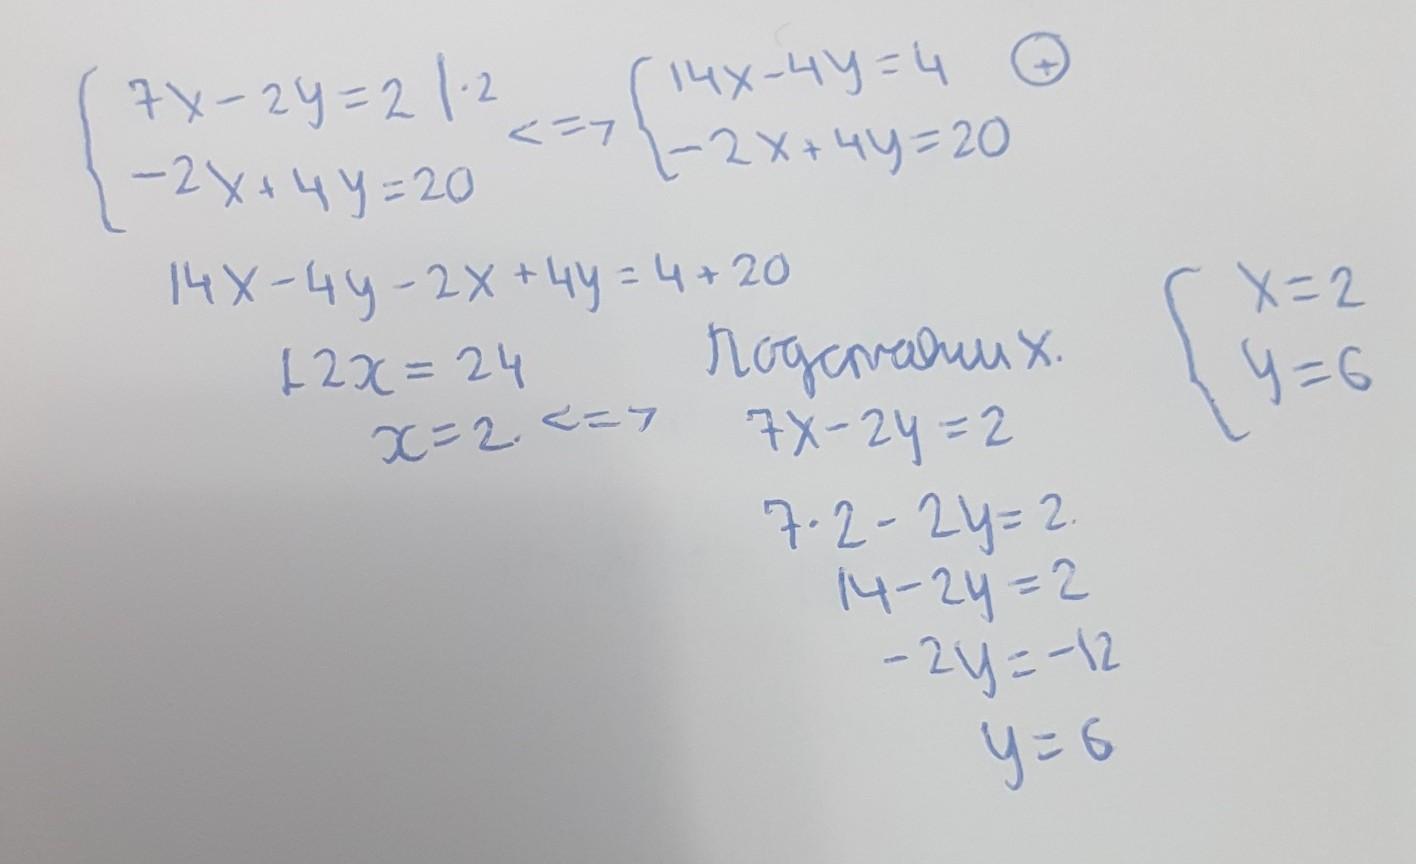 { 7x - 2y = 2 | · 2
-2x + 4y = 20
<=>
{ 14x - 4y = 4 ⊕
-2x + 4y = 20
14x - 4y - 2x + 4y = 4 + 20
12x = 24
x = 2. <=>
Подставим x.
7x - 2y = 2
7 · 2 - 2y = 2.
14 - 2y = 2
-2y = -12
y = 6
{ x = 2
y = 6